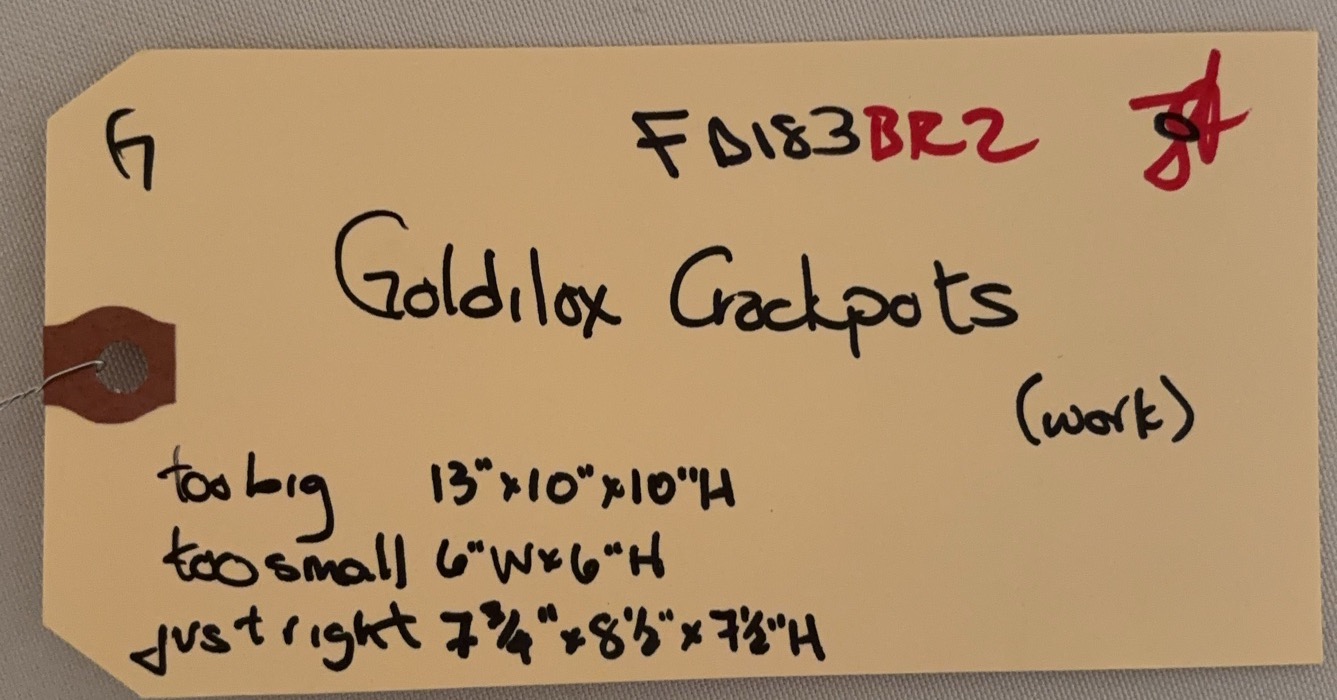 FD183BR2
Goldilox Crackpots
(work)
too big 13"x10"x10"H
too small 6"Wx6"H
just right 7 3/4"x8 1/2"x7 1/2"H